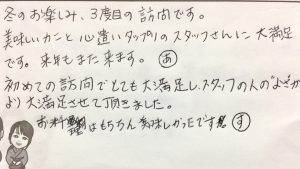 冬のお楽しみ、3度目の訪問です。
美味しいカニと心遣いタップリのスタッフさんに大満足
です。来年もまた来ます。 あ
初めての訪問でとても大満足し、スタッフの人の
より大満足させて頂きました。
お料理はもちろん美味しかったです す